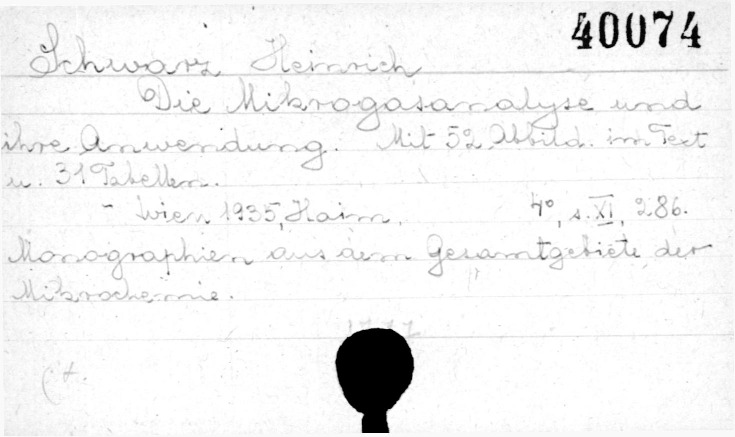 40074
Schwarz Heinrich
Die Mikrogasanalyse und
ihre Anwendung. Mit 52 Abbild. im Text
u. 31 Tabellen.
- Wien 1935, Haim. 4°, s. XI, 286.
Monographien aus dem Gesamtgebiete der
Mikrochemie.